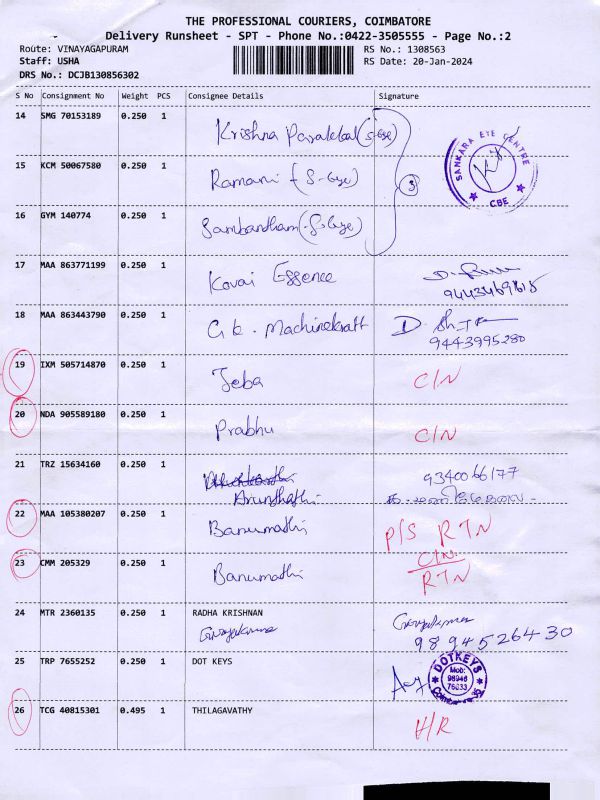 THE PROFESSIONAL COURIERS, COIMBATORE
Delivery Runsheet - SPT - Phone No.:0422-3505555 - Page No.:2
Route: VINAYAGAPURAM
RS No.: 1308563
Staff: USHA
RS Date: 20-Jan-2024
DRS No.: DCJB130856302
S No Consignment No Weight PCS Consignee Details Signature
14 SMG 70153189 0.250 1 Krishna
SANKARA EYE CENTRE
CBE
15 KCM 50067580 0.250 1 Ramani (S-Eye) 3
16 GYM 140774 0.250 1 Sambandham (S-Eye)
17 MAA 863771199 0.250 1 Kovai Essence
18 MAA 863443790 0.250 1 G.K. Machinekraft
9443995280
19 IXM 505714870 0.250 1 Jeba C/N
20 NDA 905589180 0.250 1 Prabhu C/N
21 TRZ 15634160 0.250 1 9340066177
Arundhathi
22 MAA 105380207 0.250 1 Banumathi P/S RTN
23 CMM 205329 0.250 1 Banumathi C/N.
RTN
24 MTR 2360135 0.250 1 RADHA KRISHNAN
9894526430
25 TRP 7655252 0.250 1 DOT KEYS
DOTKEYS
Mob:
98946
76033
Coimbatore-35
26 TCG 40815301 0.495 1 THILAGAVATHY H/R